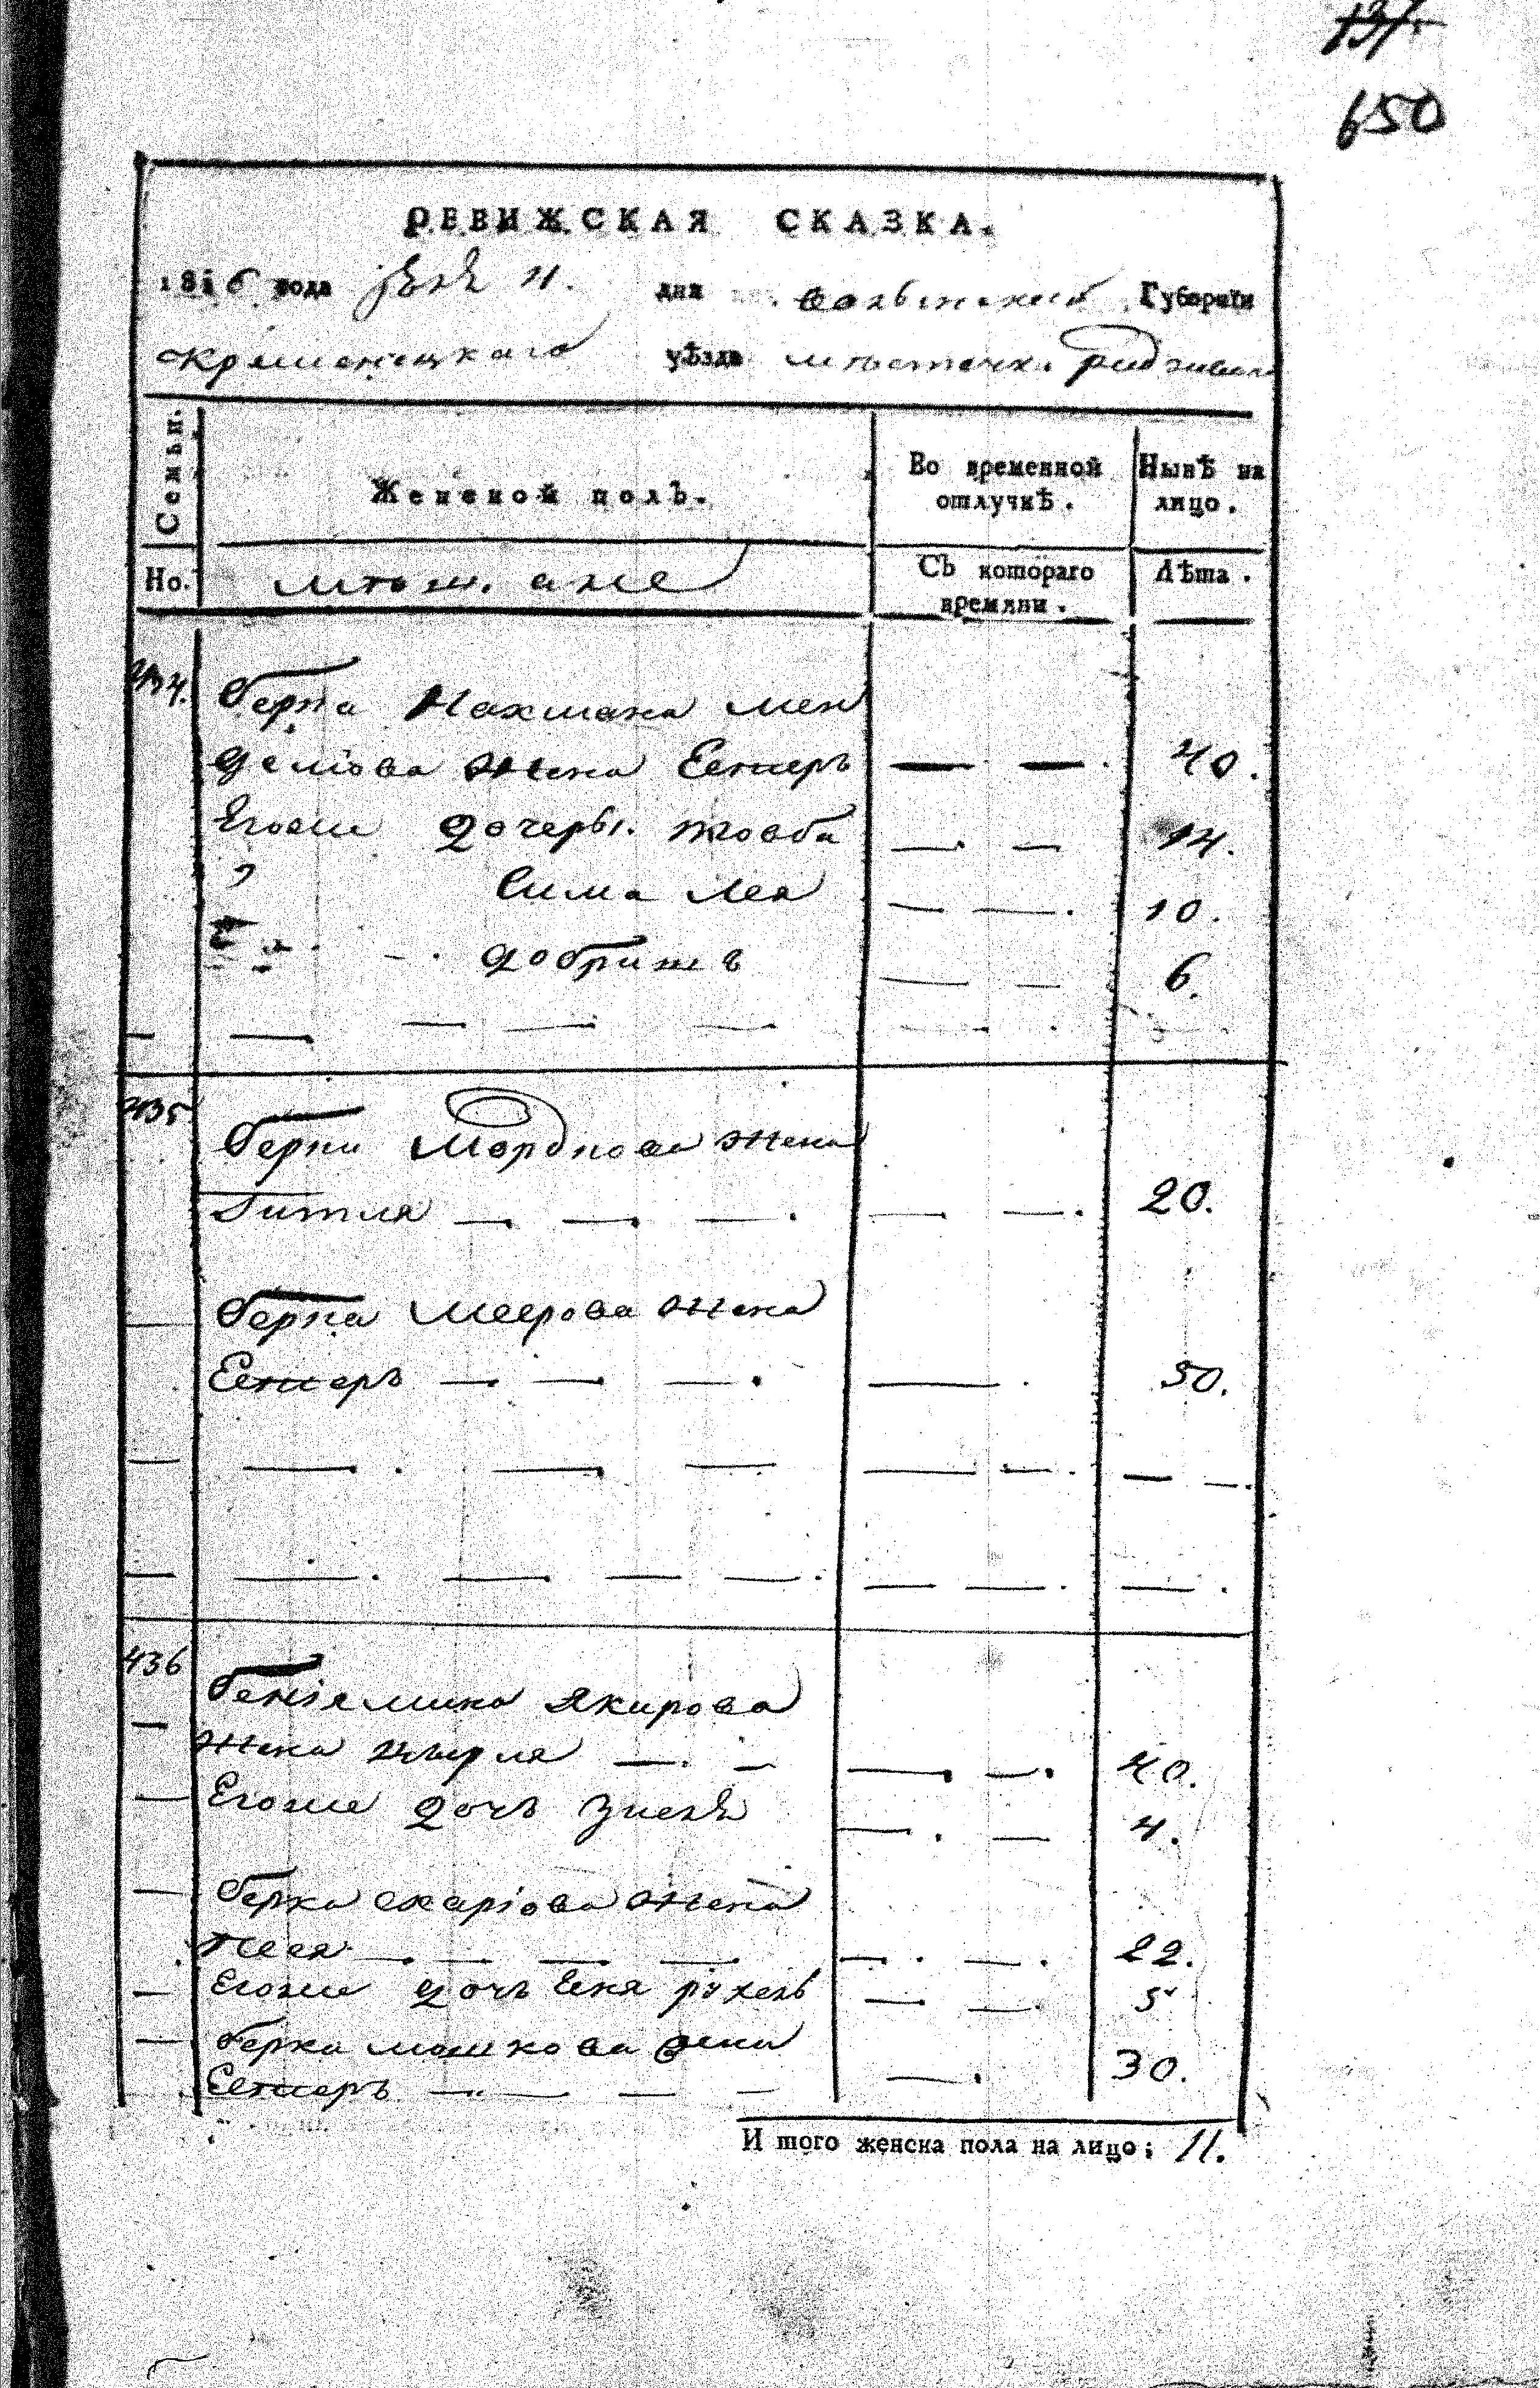 137.
650
РЕВИЖСКАЯ СКАЗКА.
1816 года 11. дня Волынской Губернїи
Кременецкаго уѣзда мѣстечка Радзивил
Семьи. Женской полъ. Во временной отлучкѣ. Нынѣ на лицо.
Но. Съ котораго времяни. Лѣта.
434. Берка Нахмана Мен
делiова жена Естеръ — — . 40.
Егоже дочеры. Товба —. — 14.
" Сима Лея — — . 10.
добришъ — — 6.
435 Берки Мордкова жена
Гитля —. —. — . — — . 20.
Берка Меерова жена
Естеръ —. —. — . — . 50.
436 Бенiямина Якирова
жена —. — —. —. 40.
Егоже дочъ —. — 4.
Берка жена
Песя —. — — — —. — . 22.
Егоже дочъ — — . 5
Берка Мошкова жена
Естеръ — — — — —. 30.
И того женска пола на лицо; 11.